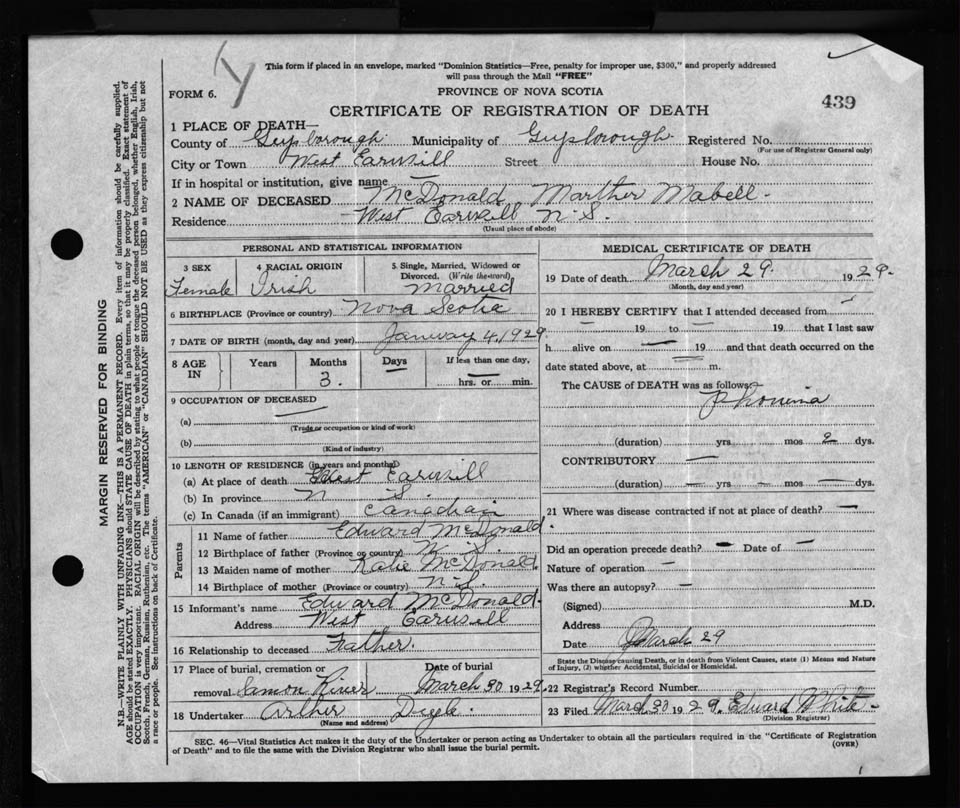 This form if placed in an envelope, marked "Dominion Statistics—Free, penalty for improper use, $300," and properly addressed
will pass through the Mail "FREE"
FORM 6.
PROVINCE OF NOVA SCOTIA
CERTIFICATE OF REGISTRATION OF DEATH
439
1 PLACE OF DEATH—
County of Guysborough Municipality of Guysborough Registered No.
(For use of Registrar General only)
City or Town West Street House No.
If in hospital or institution, give name —
2 NAME OF DECEASED McDonald Marther Mabell
Residence West N.S.
(Usual place of abode)
PERSONAL AND STATISTICAL INFORMATION
3 SEX 4 RACIAL ORIGIN 5 Single, Married, Widowed or
Divorced. (Write the word)
Female Irish married
6 BIRTHPLACE (Province or country) Nova Scotia
7 DATE OF BIRTH (month, day and year) January 4, 1929
8 AGE IN Years Months Days If less than one day,
3. — — hrs. or min.
9 OCCUPATION OF DECEASED
(a) —
(Trade or occupation or kind of work)
(b)
(Kind of industry)
10 LENGTH OF RESIDENCE (in years and months)
(a) At place of death West
(b) In province N S
(c) In Canada (if an immigrant) Canadian
Parents
11 Name of father Edward McDonald.
12 Birthplace of father (Province or country) N.S.
13 Maiden name of mother Katie McDonald
14 Birthplace of mother (Province or country) N.S.
15 Informant's name Edward McDonald
Address West
16 Relationship to deceased Father.
17 Place of burial, cremation or Date of burial
removal Samon River March 30 1929.
18 Undertaker Arther
(Name and address)
MEDICAL CERTIFICATE OF DEATH
19 Date of death March 29. 1929.
(Month, day and year)
20 I HEREBY CERTIFY that I attended deceased from —
— 19 to — 19 that I last saw
h alive on — 19 and that death occurred on the
date stated above, at — m.
The CAUSE of DEATH was as follows:
Phonina
(duration) yrs mos 2 dys.
CONTRIBUTORY —
(duration) — yrs — mos — dys.
21 Where was disease contracted if not at place of death? —
Did an operation precede death? — Date of —
Nature of operation —
Was there an autopsy? —
(Signed) M.D.
Address
Date March 29
State the Disease causing Death, or in death from Violent Causes, state (1) Means and Nature
of Injury, (2) whether Accidental, Suicidal or Homicidal.
22 Registrar's Record Number
23 Filed March 30 1929. Edward White
(Division Registrar)
SEC. 46—Vital Statistics Act makes it the duty of the Undertaker or person acting as Undertaker to obtain all the particulars required in the "Certificate of Registration
of Death" and to file the same with the Division Registrar who shall issue the burial permit.
(OVER)
MARGIN RESERVED FOR BINDING
N.B.—WRITE PLAINLY WITH UNFADING INK—THIS IS A PERMANENT RECORD. Every item of information should be carefully supplied.
AGE should be stated EXACTLY. PHYSICIANS should STATE CAUSE OF DEATH in plain terms, so that it may be properly classified. Exact statement of
OCCUPATION is very important. RACIAL ORIGIN will be described by stating to what people or tongue the deceased person belonged, whether English, Irish,
Scotch, French, German, Russian, Ruthenian, etc. The terms "AMERICAN" or "CANADIAN" SHOULD NOT BE USED as they express citizenship but not
a race or people. See instructions on back of Certificate.